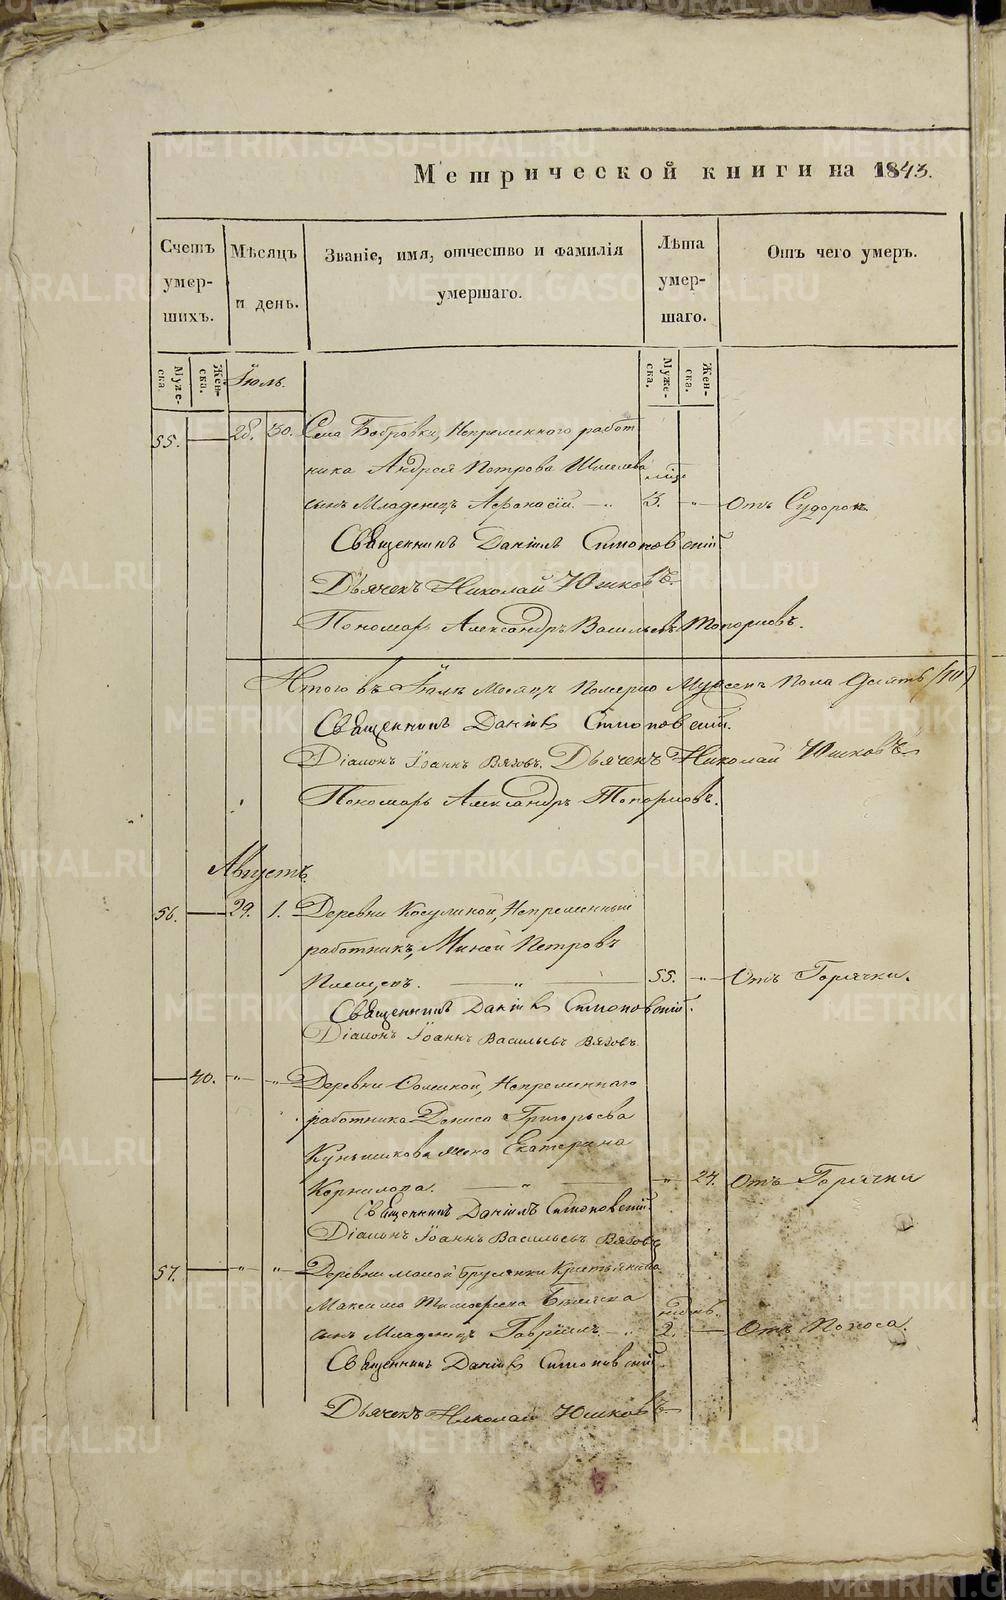 Метрической книги на 1843.
Счетъ умер-шихъ.
Мѣсяцъ и день.
Званіе, имя, отчество и фамилія умершаго.
Лѣта умер-шаго.
Отъ чего умеръ.
Муже-ска.
Жен-ска.
Іюль.
Муже-ска.
Жен-ска.
55. — 28. 30. Села Бобровки, Непременного работ
ника Андрея Петрова Шмелева
сынъ Младенецъ Афанасій. — 3. — Отъ Судорокъ.
Священникъ Даніилъ Симоновскій
Дьячекъ Николай Юшковъ.
Пономарь Александръ Васильевъ Топорковъ.
Итого въ Іюлѣ Месяцѣ Померло Мужеска Пола Десять (10)
Священникъ Даніилъ Симоновскій.
Діаконъ Іоаннъ Вязовъ. Дьячекъ Николай Юшковъ.
Пономарь Александръ Топорковъ.
Августъ.
56. — 29. 1. Деревни Косулиной, Непременный
работникъ, Миней Петровъ
55. — Отъ Горячки.
Священникъ Даніилъ Симоновскій.
Діаконъ Іоаннъ Васильевъ Вязовъ
— 40. Деревни Непременнаго
работника Дениса Григорьева
жена Екатерина
Корнилова. — 24. Отъ Горячки
Священникъ Даніилъ Симоновскій
Діаконъ Іоаннъ Васильевъ Вязовъ
57. — Деревни малой Брусянки Крестьянина
Максима Тимофеева
сынъ Младенецъ Гавріилъ — 2. — Отъ Поноса.
Священникъ Даніилъ Симоновскій
Дьячекъ Николай Юшковъ
METRIKI.GASO-URAL.RU